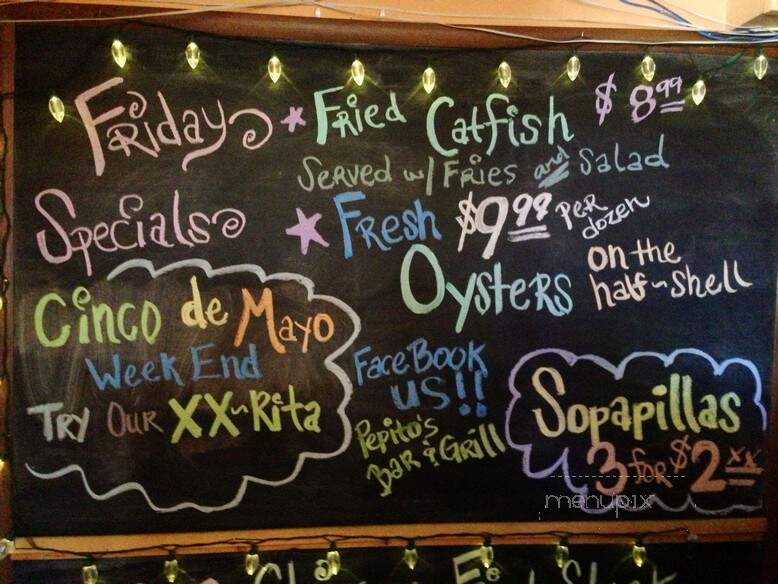 Friday
Specials
* Fried Catfish $8.99
Served w/ Fries and Salad
* Fresh $9.99 per dozen
Oysters on the half-shell
Cinco de Mayo
Week End
Try Our XX-Rita
FaceBook
us!!
Pepito's
Bar & Grill
Sopapillas
3 for $2.xx
menupix